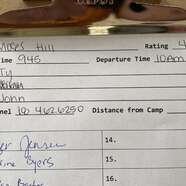 Moses Hill Rating 4
Time 945 Departure Time 10am
Ty
John
nel ID 4626250 Distance from Camp
er Jensen 14.
rine Byers 15.
16.